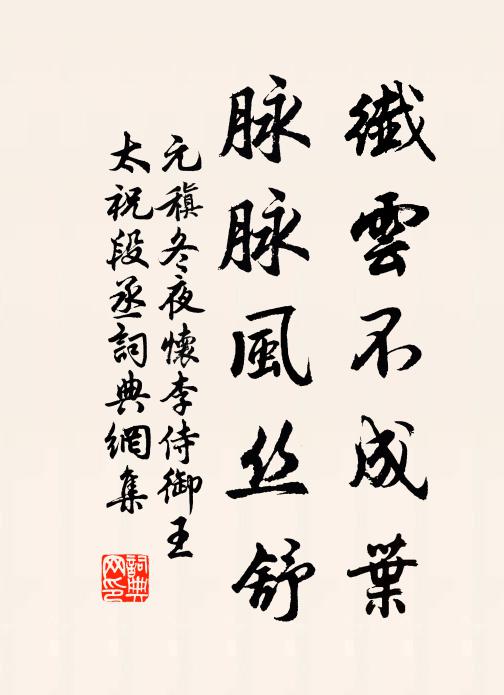 纖雲不成葉
脉脉風丝舒
元稹冬夜懷李侍御王
太祝段丞詞典網集
詞典
网印